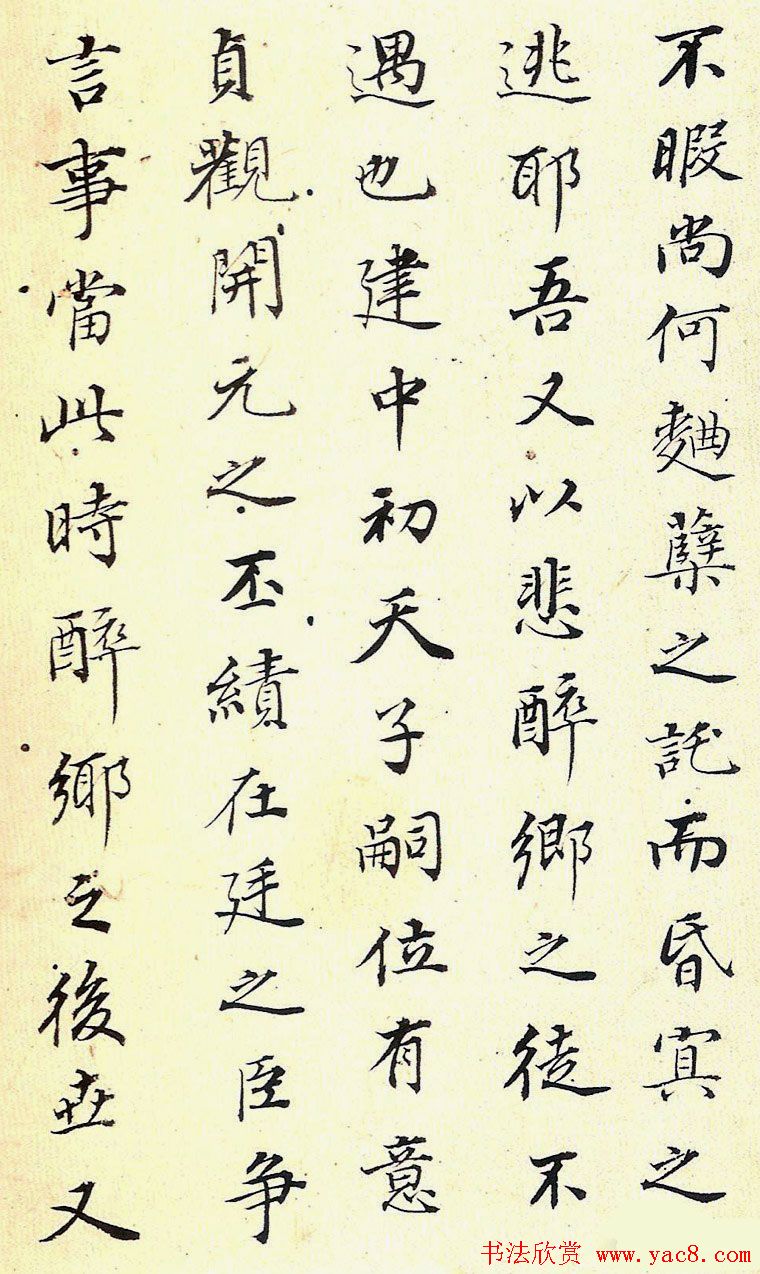 不暇尚何麯糵之託而昏冥之
逃耶吾又以悲醉鄉之徒不
遇也建中初天子嗣位有意
貞觀開元之丕績在廷之臣争
言事當此時醉鄉之後世又
书法欣赏 www.yac8.com